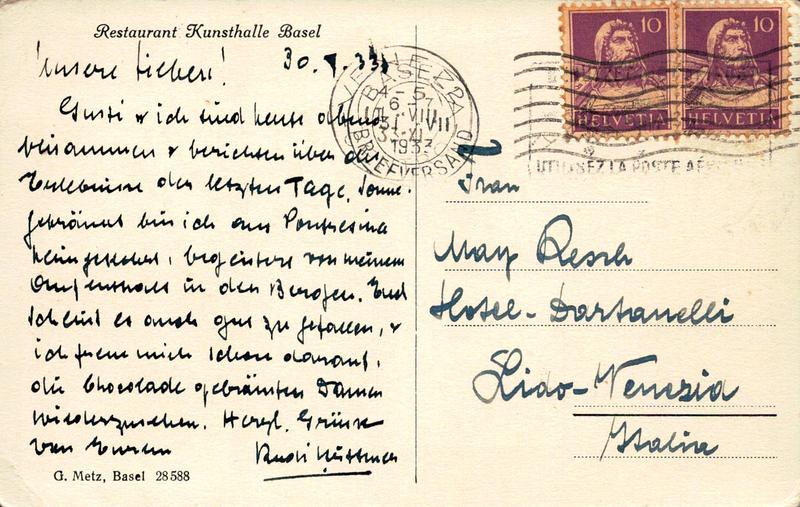 Restaurant Kunsthalle Basel
30. 33
Unsere Lieben!
Gusti & ich sind heute abend
beisammen & berichten über die
Erlebnisse der letzten Tage. Sonne-
gebräunt bin ich aus Pontresina
heimgekehrt, begeistert von meinem
Aufenthalt in den Bergen. Euch
scheint es auch gut zu gefallen, &
ich freue mich schon darauf,
die Chocolade gebräunten Damen
wiederzusehen. Herzl. Grüsse
von Eurem Rudi
G. Metz, Basel 28588
BASEL 2
1933
BRIEFVERSAND
10
HELVETIA
10
HELVETIA
UTILISEZ LA POSTE
Frau
Mary Resch
Hotel-Dartanelli
Lido-Venezia
Italia